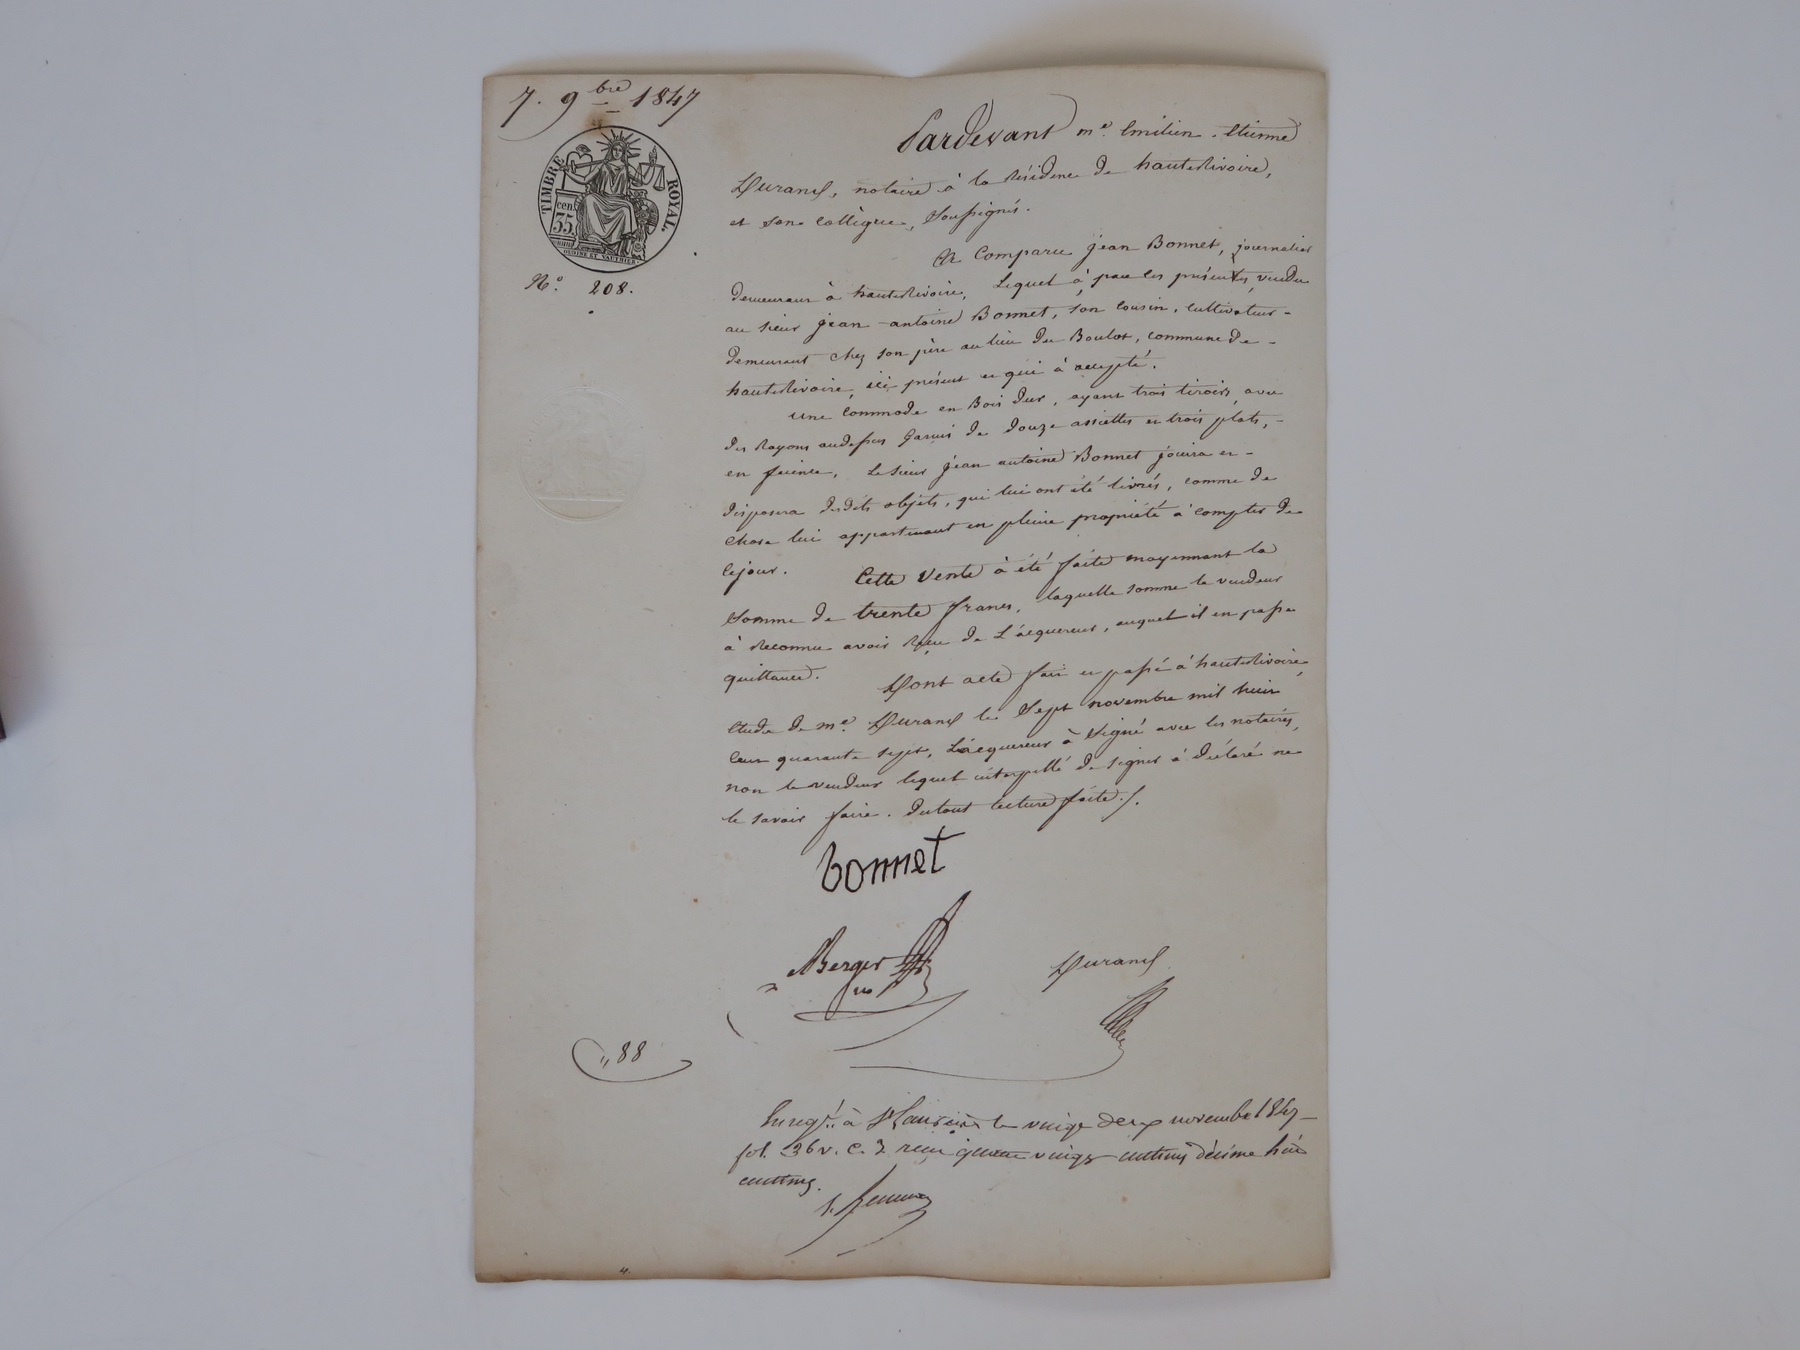 7. 9bre 1847
TIMBRE ROYAL.
cen. 35.
OUDINE ET VAUTHIER.
No. 208.
Pardevant me. émilien. étienne
Durand, notaire à la Résidence de hauterivoire,
et son collègue, Soussignés.
A Comparu jean Bonnet, journalier
demeurant à hauterivoire, Lequel à, par les présentes, vendu
au sieur jean-antoine Bonnet, son cousin, cultivateur-
demeurant chez son père au lieu du Boulot, commune de-
hauterivoire, ici présent et qui à accepté.
une Commode en Bois dur, ayant trois tiroirs, avec
des Rayons audessus Garnis de douze assiettes et trois plats,-
en faience, Le sieur jean antoine Bonnet jouira et-
disposera desdits objets, qui lui ont été livrés, comme de
Chose lui appartenant en pleine propriété à compter de
cejour.
Cette Vente à été faite moyennant la
Somme de trente francs, laquelle somme le vendeur
à Reconnu avoir Reçu de L'acquereur, auquel il en passe
quittance.
Dont acte fait et passé à hauterivoire,
étude de me. Durand le Sept novembre mil huit
cent quarante sept, L'acquereur à Signé avec les notaires,
non le vendeur lequel interpellé de signer à déclaré ne
le savoir faire. dutout lecture faite./.
bonnet
Berger
Durand
,, 88
Enregt. à St Laurent le vingt deux novembre 1847
fol. 36 v. C. 3 reçu quatre vingt centimes décime huit
centimes.